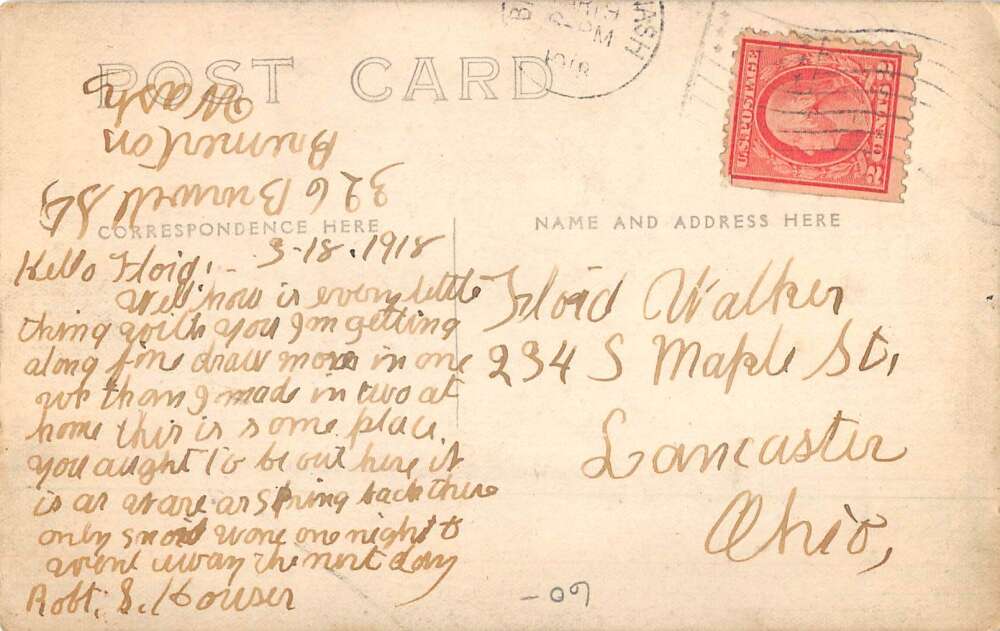 POST CARD
B
2 PM
1918
WASH
U.S. POSTAGE
2 CENTS 2
326 Burwell St
Bremerton
Wash
CORRESPONDENCE HERE
NAME AND ADDRESS HERE
3-18.1918
Hello Floid:-
Well how is every little
thing with you I'm getting
along fine draw more in one
wk than I made in two at
home this is some place.
you aught to be out here it
is as ware as Spring back there
only snoid wone one night &
went away the next day
Robt. S. Houser
Floid Walker
234 S Maple St.,
Lancaster
Ohio,
-09